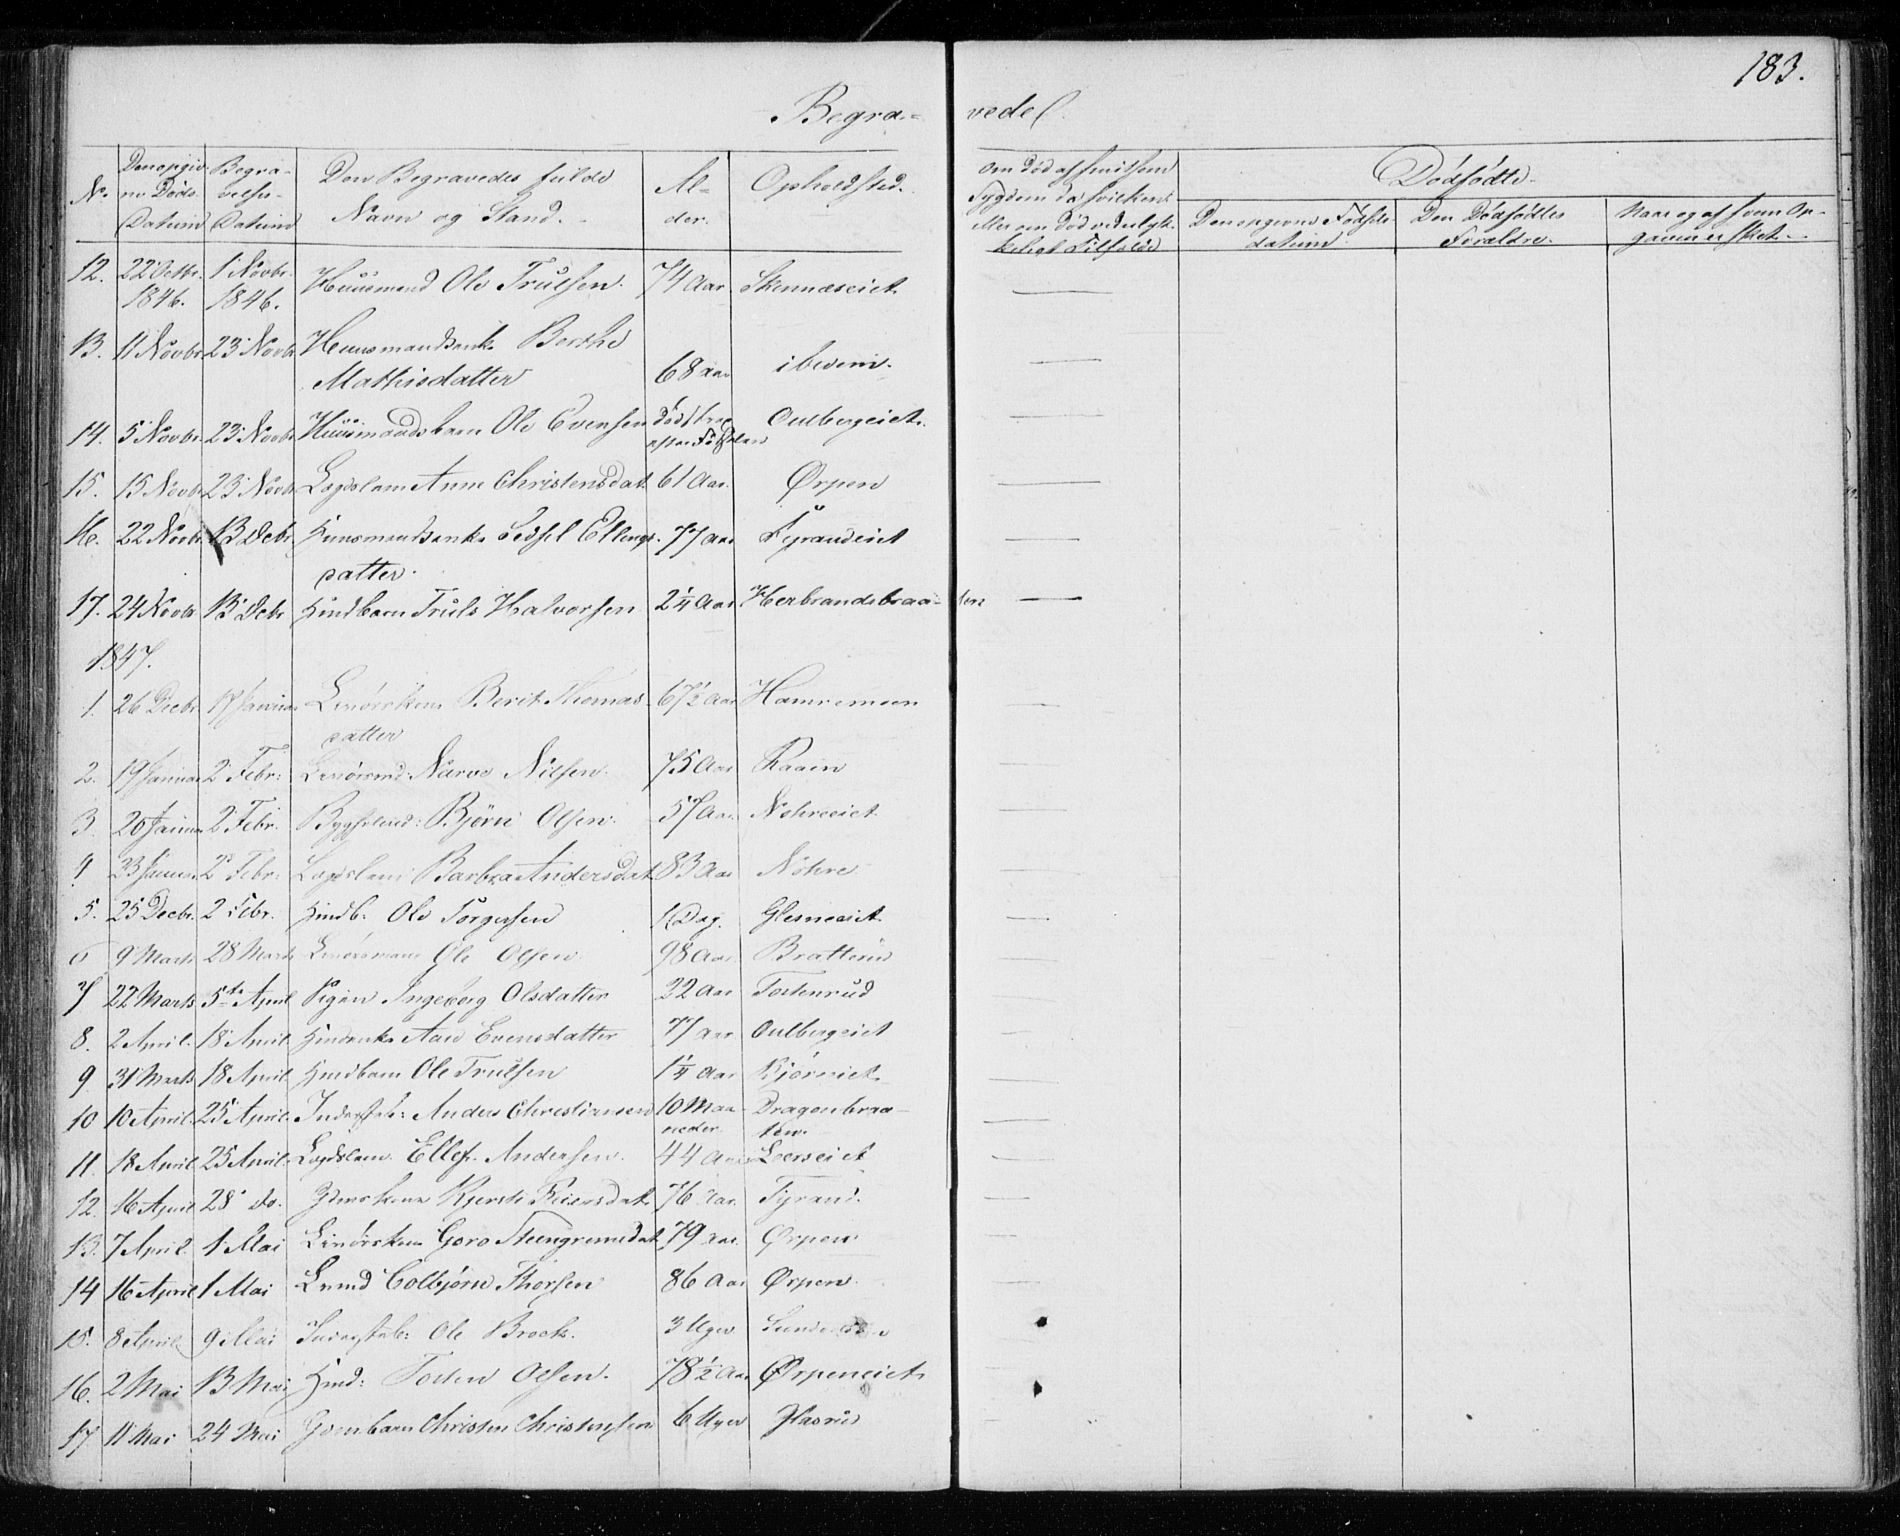 183.
Begra-
vede
No. Den opgiv- Begra- Den Begravedes fulde Al- Opholdsted.
ne Døds- velses- Navn og Stand. der.
Datum Datum
Om død af smitsom
Sygdom da hvilken:
eller om død ved ulyk-
keligt Tilfælde
Dødfødte.
Den opgivne Fødsels
datum
Den Dødfødtes
Forældre.
Naar og af hvem Op-
gaven er skeet.
12. 22 Octbr. 1 Novbr. Huusmand Ole Truelsen. 74 Aar Skinnæseiet.
1846. 1846.
13. 11 Novbr 23 Novbr Huusmandsenke Berthe
Mathisdatter 68 aar ibidem.
14. 5 Novbr. 23 Novbr Huusmandsbarn Ole Evensen død strax Oulbergeiet.
efter Fødselen
15. 15 Novbr 23 Novbr Lægdslem Anne Christensdat. 61 Aar. Ørpen
16. 22 Novbr 13 Debr. Huusmandsenke Sidsel Ellings- 77 aar Fyrandeiet
datter.
17. 24 Novbr 13 Debr Hmdbarn Truls Halvorsen 2¼ Aar Herbrandsbraa- ten
1847.
1. 26 Decbr. 17 Januar Livørskone Berit Thomas- 67½ Aar Hamremoen
datter
2. 19 Januar 2 Febr: Livørsmd: Narve Nilsen. 75 Aar Raaen
3. 20 Januar 2 Febr. Bygselmd: Bjørn Olsen. 57 Aar. Nohreeiet
4 23 Januar 2 Febr: Lægdslem Barbra Andersdat. 83 Aar Nohre
5. 25 Decbr. 2 Febr. Hmdb: Ole Torgersen 1 Dag. Glesneeiet.
6 9 Marts 28 Marts Livørsmand Ole Olsen 98 Aar Bratterud
7 22 Marts 5te April Pigen Ingeborg Olsdatter 22 Aar Tostenrud
8. 2 April. 18 April. Hmdenke Aase Evensdatter 77 aar Oulbergeiet
9 31 Marts 18 April Hmdbarn Ole Truelsen 1¼ Aar Bjørneiet
10 10 April. 25 April. Inderstb: Anders Christiansen 10 Maa- Dragonbraa-
neder ten.
11. 18 April 25 April. Lægdslem Ellef Andersen. 44 Aar Leerseiet
12. 16 April 28 do. Kjersti Reiersdat. 76 aar. Tyrand.
13. 7 April. 1 Mai Livørskone Goro Steengrimsdat. 79 aar. Ørpen
14 16 April 1 Mai Lvmd Colbjørn Thorsen 86 Aar Ørpen.
15. 8 April 9 Mai Inderstb: Ole Brock. 3 Uger
16. 2 Mai 13 Mai Hmd: Tosten Olsen. 78½ Aar Ørpeneiet
17 11 Mai 24 Mai Gmbarn Christen Christensen 6 Uger Hasrud